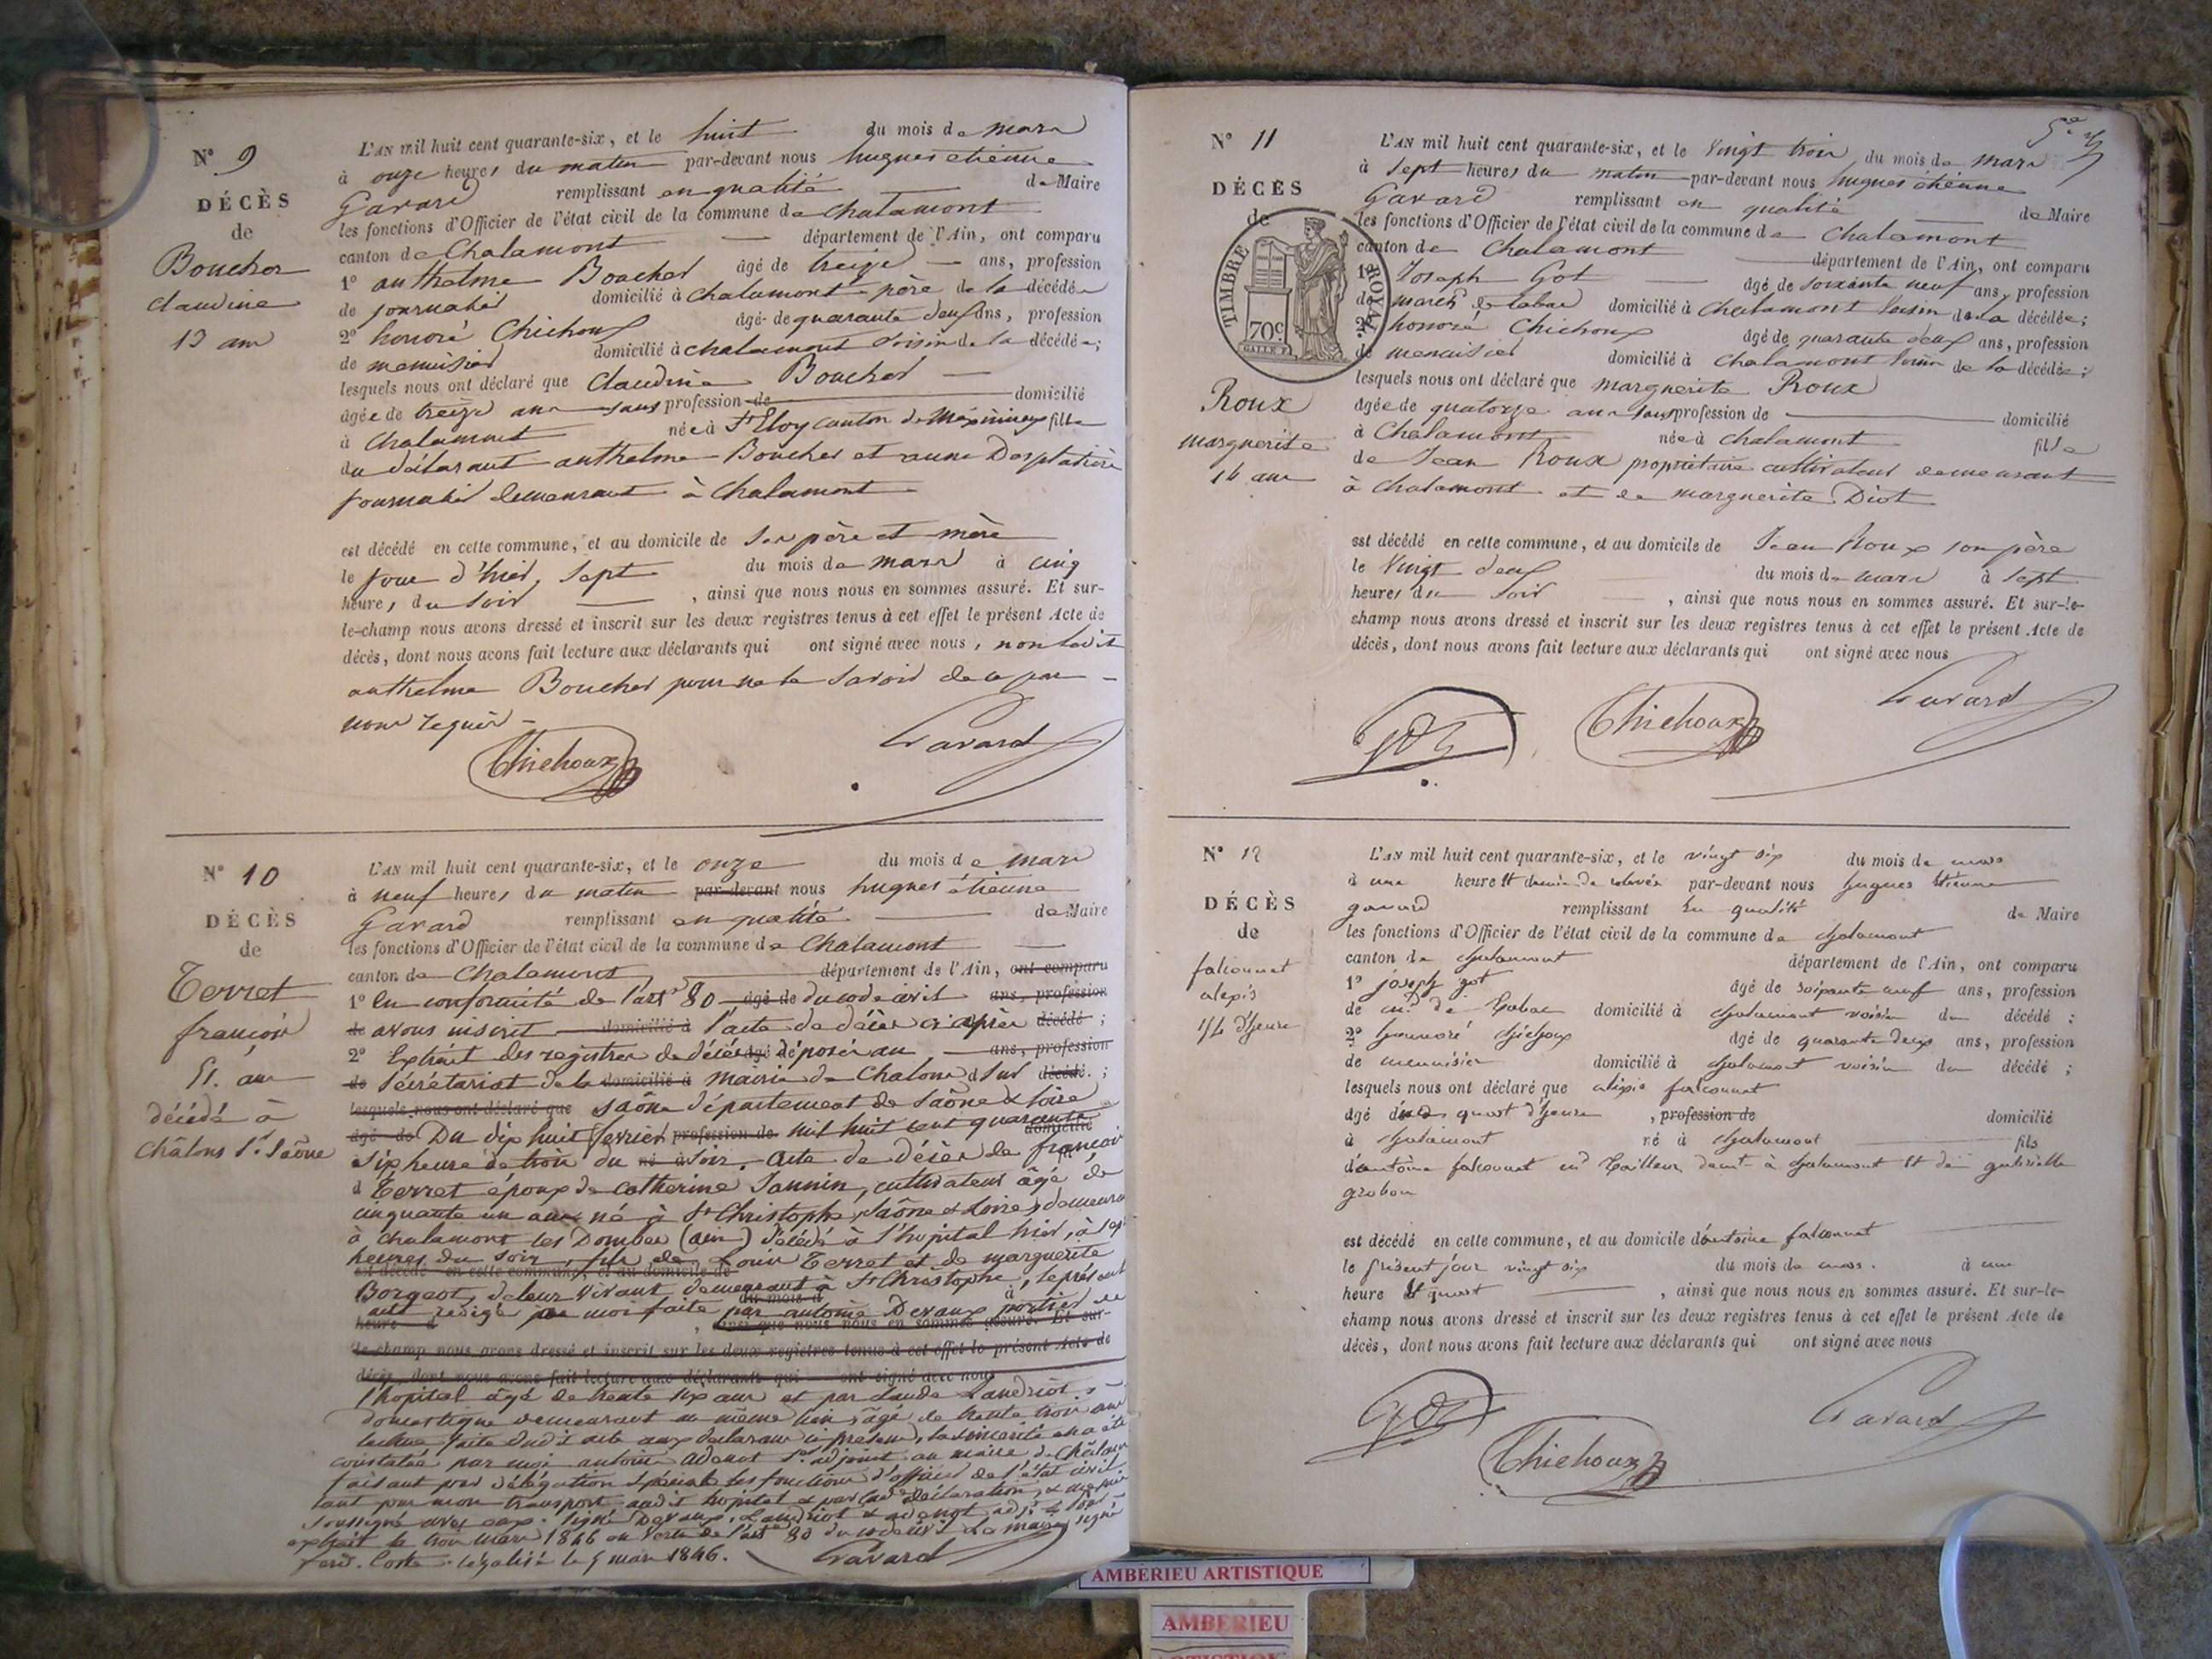 N° 9
DÉCÈS
de
Boucher
claudine
13 ans
L'AN mil huit cent quarante-six, et le huit du mois de mars
à onze heures du matin par-devant nous hugues étienne
Gavard remplissant en qualité de Maire
les fonctions d'Officier de l'état civil de la commune de chalamont
canton de Chalamont département de l'Ain, ont comparu
1° anthelme Boucher âgé de treize ans, profession
de journalier domicilié à chalamont père de la décédée
2° honoré Chichoux âgé de quarante deux ans, profession
de menuisier domicilié à chalamont voisin de la décédée;
lesquels nous ont déclaré que claudine Boucher
âgée de treize ans sans profession de domicilié
à chalamont née à St Eloy canton de Méximieux fille
du déclarant anthelme Boucher et anne
journalier demeurant à Chalamont
est décédé en cette commune, et au domicile de ses père et mère
le jour d'hier, sept du mois de mars à cinq
heures du soir, ainsi que nous nous en sommes assuré. Et sur-
le-champ nous avons dressé et inscrit sur les deux registres tenus à cet effet le présent Acte de
décès, dont nous avons fait lecture aux déclarants qui ont signé avec nous, non ledit
anthelme Boucher pour ne le savoir de ce par
nous requis
Chichoux Gavard
N° 10
DÉCÈS
de
Terret
françois
51. ans
décédé à
Châlons s. Saône
L'AN mil huit cent quarante-six, et le onze du mois de mars
à neuf heures du matin par-devant nous hugues étienne
Gavard remplissant en qualité de Maire
les fonctions d'Officier de l'état civil de la commune de Chalamont
canton de Chalamont département de l'Ain, ont comparu
1° En conformité de l'art 80 âgé de du code civil ans, profession
de avons inscrit domicilié à l'acte de décès ci après décédé;
2° Extrait des registres de décès âgé déposés au ans, profession
de Sécrétariat de la domicilié à mairie de Chalons s Sur décédé.;
lesquels nous ont déclaré que saône département de Saône & Loire
âgé de Du dix huit fevrier profession de mil huit cent quarante domicilié
six heure de trois du né à soir. acte de décès de françois
Terret époux de catherine Jannin, cultivateur âgé de
cinquante un ans né à St Christophe, (saône & Loire) demeurant
à chalamont les Dombes (ain) décédé à l'hopital hier, à sept
heures du soir, fils de Louis Terret et de marguerite
est décédé en cette commune, et au domicile de
Borgeot, de leur vivant demeurant à St Christophe, le présent
du mois d à
acte redigé par moi faite par antoine Devaux portier de
heure d , ainsi que nous nous en sommes assuré. Et sur-
le-champ nous avons dressé et inscrit sur les deux registres tenus à cet effet le présent Acte de
décès, dont nous avons fait lecture aux déclarants qui ont signé avec nous
l'hopital âgé de trente six ans et par claude Landriot
domestique demeurant au même lieu âgé de trente trois ans
lecture faite dudit acte aux declarans ci présens, la sincérité en a été
constatée par moi antoine adenot adjoint au maire de Châlons
faisant par délégation spéciale les fonctions d'officier de l'état civil
tant pour mon transport audit hopital & par lad. déclaration, &
soussigné avec eux. signé Devaux, Landriot & adenot adj.
extrait le trois mars 1846 en vertu de l'art 80 du code civil Le maire signé
ferd. Coste. légalisé le 5 mars 1846. Gavard
N° 11
DÉCÈS
de
TIMBRE ROYAL
70c
Roux
marguerite
14 ans
L'AN mil huit cent quarante-six, et le vingt trois du mois de mars
à sept heures du matin par-devant nous hugues étienne
Gavard remplissant en qualité de Maire
les fonctions d'Officier de l'état civil de la commune de Chalamont
canton de Chalamont département de l'Ain, ont comparu
1° Joseph Got âgé de soixante neuf ans, profession
de march de tabac domicilié à Chalamont voisin de la décédée;
2° honoré Chichoux âgé de quarante deux ans, profession
de menuisier domicilié à Chalamont voisin de la décédée;
lesquels nous ont déclaré que marguerite Roux
âgée de quatorze ans sans profession de domicilié
à Chalamont née à chalamont fille
de Jean Roux propriétaire cultivateur demeurant
à chalamont et de marguerite Diot
est décédé en cette commune, et au domicile de Jean Roux son père
le vingt deux du mois de mars à sept
heures du soir, ainsi que nous nous en sommes assuré. Et sur-le-
champ nous avons dressé et inscrit sur les deux registres tenus à cet effet le présent Acte de
décès, dont nous avons fait lecture aux déclarants qui ont signé avec nous
Got Chichoux Gavard
N° 12
DÉCÈS
de
falconnet
alexis
1/4 d'heure
L'AN mil huit cent quarante-six, et le vingt six du mois de mars
à une heure et demie de relevée par-devant nous hugues étienne
gavard remplissant en qualité de Maire
les fonctions d'Officier de l'état civil de la commune de chalamont
canton de chalamont département de l'Ain, ont comparu
1° joseph got âgé de soixante neuf ans, profession
de md de tabac domicilié à chalamont voisin du décédé;
2° honnoré chichoux âgé de quarante deux ans, profession
de menuisier domicilié à chalamont voisin du décédé;
lesquels nous ont déclaré que alexis falconnet
âgé d'un quart d'heure, profession de domicilié
à chalamont né à chalamont fils
d'antoine falconnet md tailleur demt à chalamont et de gabrielle
grobon
est décédé en cette commune, et au domicile d'antoine falconnet
le présent jour vingt six du mois de mars. à une
heure et quart, ainsi que nous nous en sommes assuré. Et sur-le-
champ nous avons dressé et inscrit sur les deux registres tenus à cet effet le présent Acte de
décès, dont nous avons fait lecture aux déclarants qui ont signé avec nous
Got Chichoux Gavard
AMBERIEU ARTISTIQUE
AMBERIEU
ARTISTIQUE